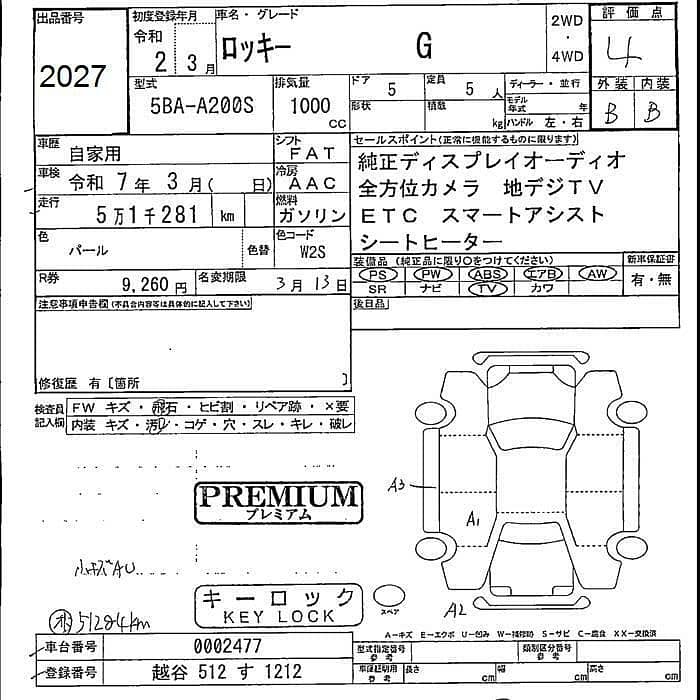 出品番号
2027
初度登録年月
令和
2 3月
車名・グレード
ロッキー G
2WD
・
4WD
評価点
4
外装 内装
B B
型式
5BA-A200S
排気量
1000
CC
ドア 5
定員 5 人
ディーラー・並行
形状
積載 kg
モデル年式 年
ハンドル 左・右
車歴
自家用
シフト
FAT
車検
令和 7年 3月( 日)
冷房
AAC
走行
5万1千281 km
燃料
ガソリン
色
パール
色替
色コード
W2S
R券
9,260円
名変期限
3月 13日
セールスポイント(正常に機能するものに限ります)
純正ディスプレイオーディオ
全方位カメラ 地デジTV
ETC スマートアシスト
シートヒーター
装備品 (純正品に限り〇をつけてください)
新車保証書
PS PW ABS エアB AW
有・無
SR ナビ TV カワ
後日品
注意事項申告欄(不具合内容等は具体的に記入して下さい)
修復歴 有〔箇所 〕
検査員
記入欄
FW キズ・飛石・ヒビ割・リペア跡・×要
内装 キズ・汚れ・コゲ・穴・スレ・キレ・破レ
PREMIUM
プレミアム
A3
A1
小キズAU
キーロック
KEY LOCK
スペア
A2
51284km
A-キズ E-エクボ U-凹み W-補修跡 S-サビ C-腐食 XX-交換済
車台番号
0002477
登録番号
越谷 512 す 1212
型式指定番号
参考
類別区分番号
参考
車庫証明用
参考
長さ cm
幅 cm
高さ cm